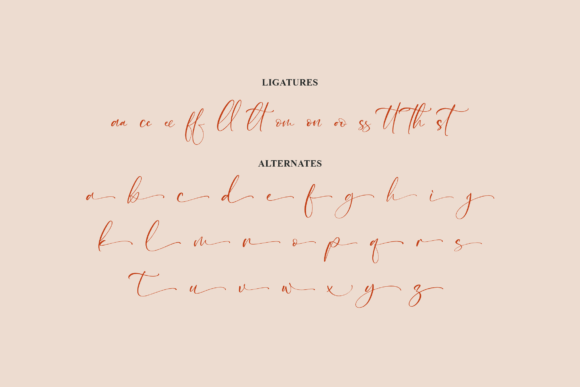 LIGATURES
aa cc ee ff ll lt om on oo ss tt th st
ALTERNATES
a b c d e f g h i j
k l m n o p q r s
t u v w x y z